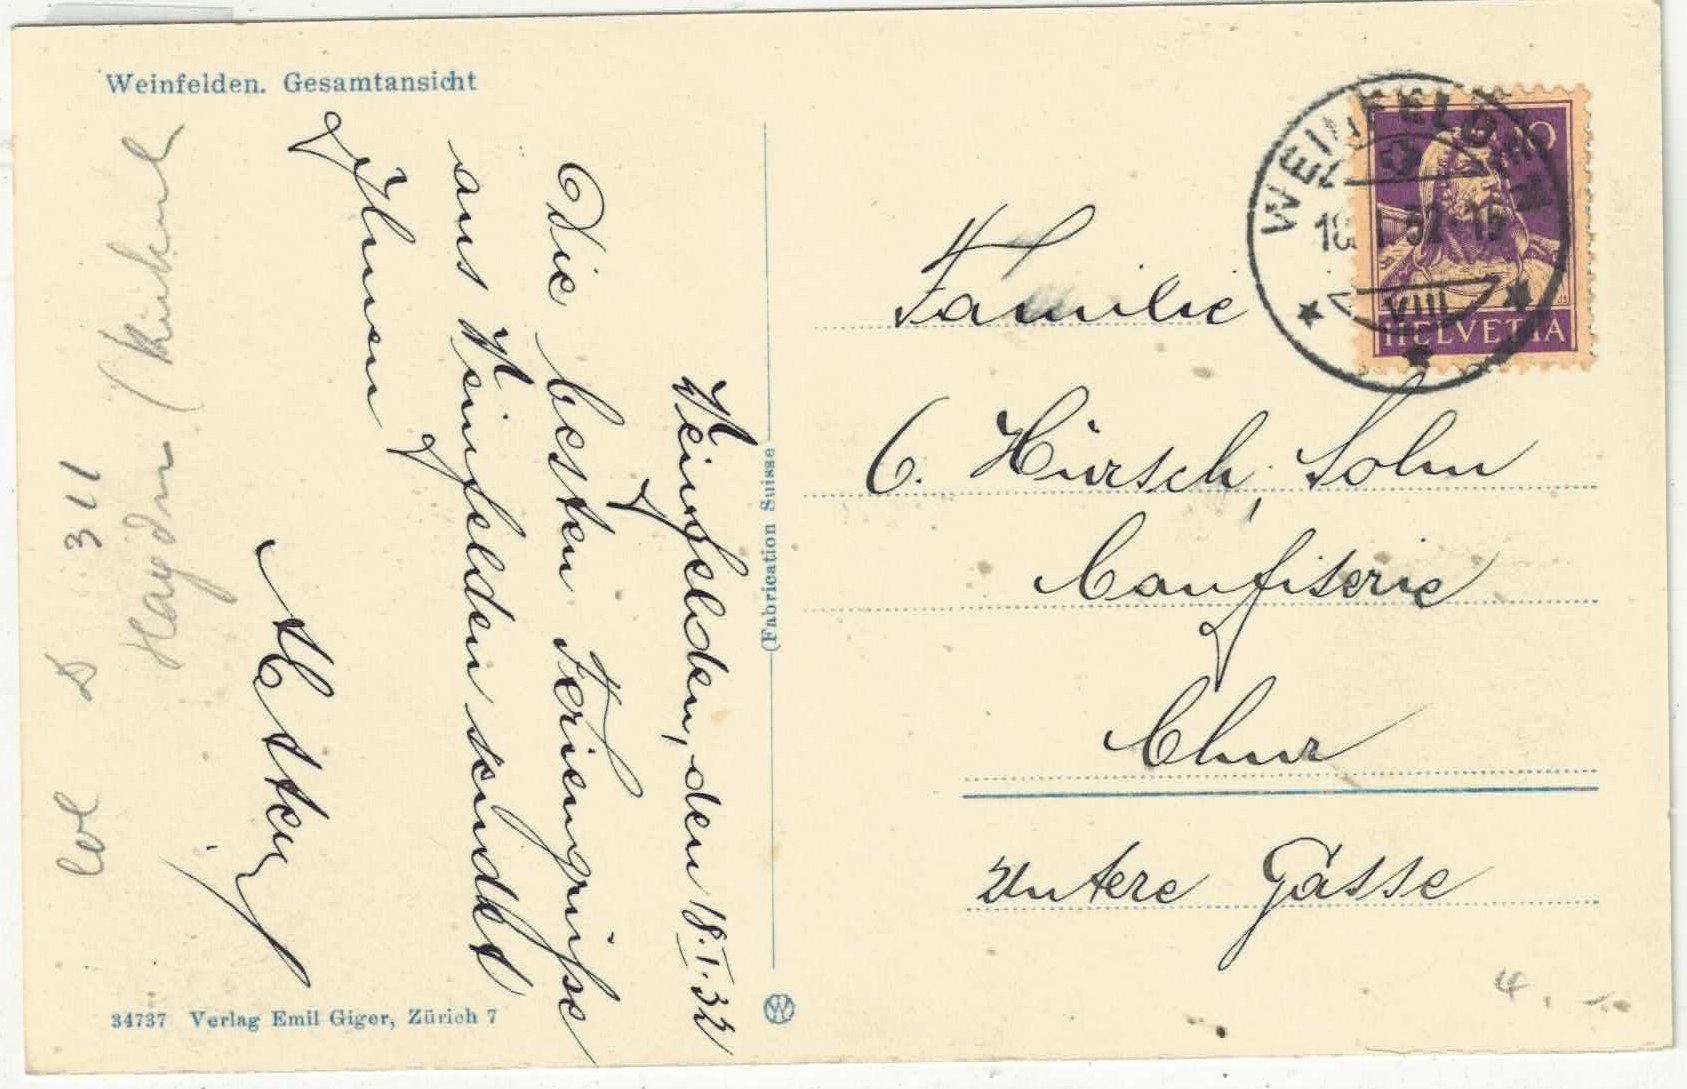 Weinfelden. Gesamtansicht
Weinfelden, den 18.I.32
Die besten Feriengrüsse
aus Weinfelden sendet
Ihnen
34737 Verlag Emil Giger, Zürich 7
(Fabrication Suisse)
WEINFELDEN
18.I.32-15
VIII
10
HELVETIA
Familie
C. Hürsch, Sohn
Confiserie
Chur
Untere Gasse
311
4.